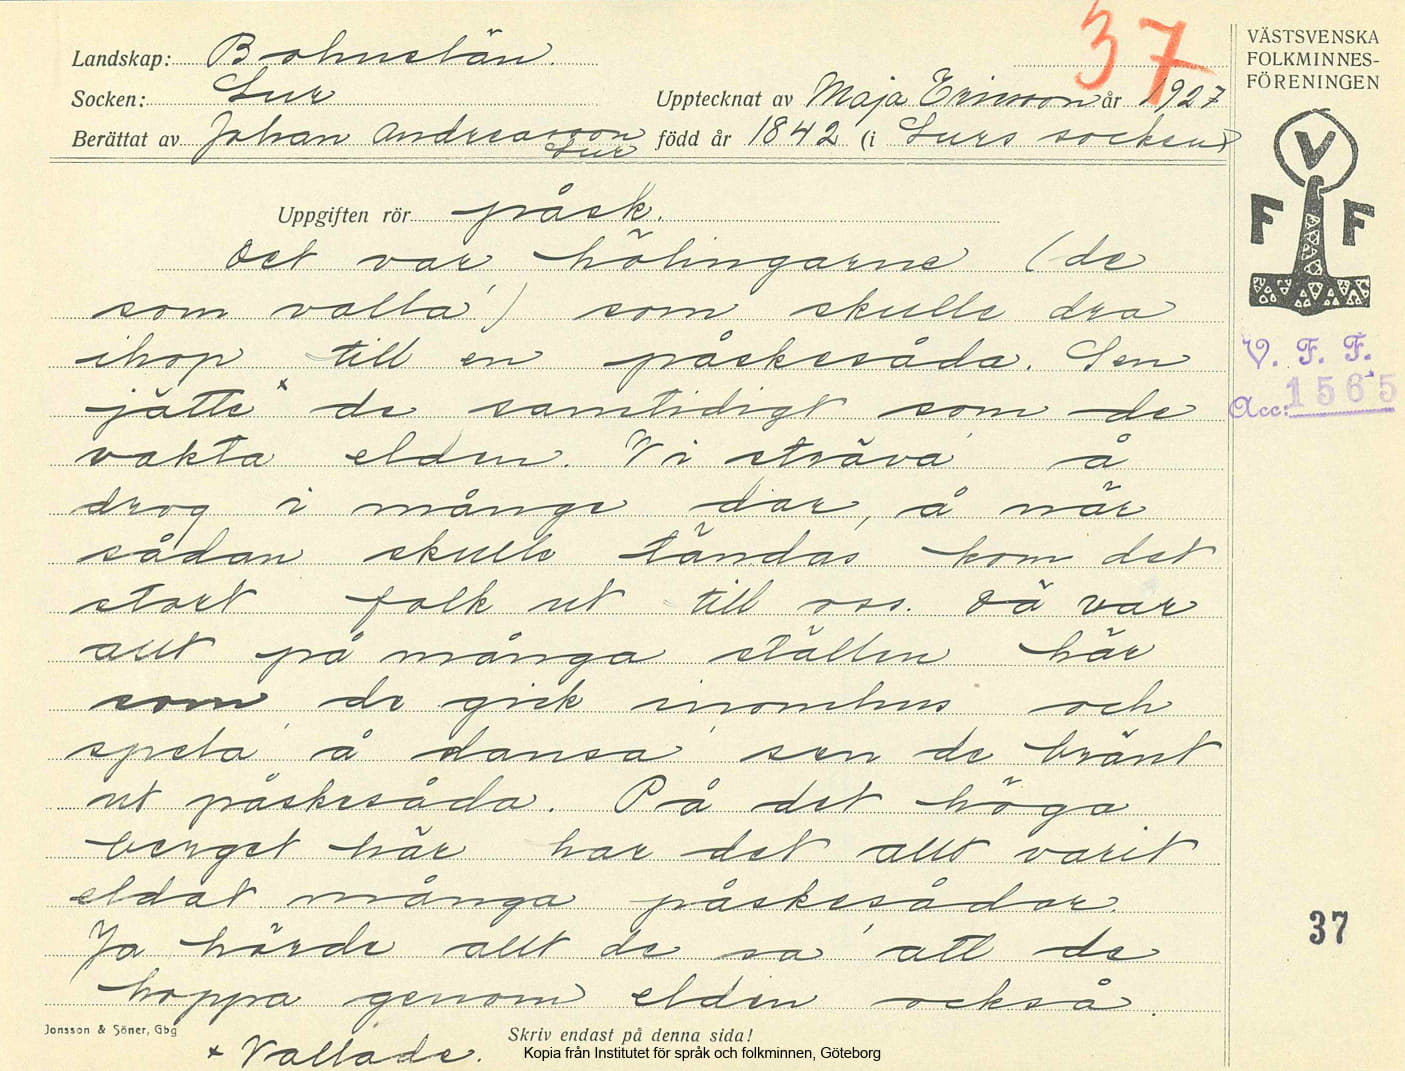 37
VÄSTSVENSKA
FOLKMINNES-
FÖRENINGEN
Landskap: Bohuslän.
Socken: Lur
Upptecknat av Maja Ericson år 1927
Berättat av Johan Andreasson Lur född år 1842 (i Lurs socken)
V
F F
V. F. F.
Acc: 1565
Uppgiften rör påsk.
Det var hölingarne (de
som valla') som skulle dra
ihop till en påskesåda. Sen
jätte x de samtidigt som de
vakta elden. Vi sträva' å
drog i månge dar, å när
sådan skulle tändas kom det
stort folk ut till oss. Dä var
allt på många ställen här
som de gick inomhus och
spela' å dansa' sen de bränt
ut påskesåda. På det höga
berget här har det allt varit
eldat många påskesådor.
Ja hörde allt de sa' att de
hoppa genom elden också.
37
x Vallade.
Jonsson & Söner, Gbg
Skriv endast på denna sida!
Kopia från Institutet för språk och folkminnen, Göteborg